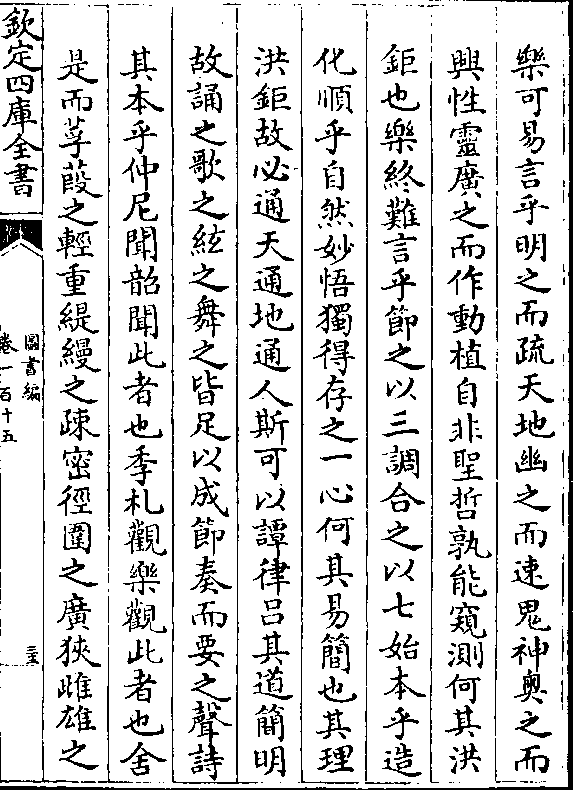 樂可易言乎明之而疏天地幽之而速鬼神奥之而
興性靈廣之而作動植自非聖哲孰能窺測何其洪
鉅也樂終難言乎節之以三調合之以七始本乎造
化順乎自然妙悟獨得存之一心何其易簡也其理
洪鉅故必通天通地通人斯可以譚律吕其道簡明
故誦之歌之絃之舞之皆足以成節奏而要之聲詩
其本乎仲尼聞韶聞此者也季札觀樂觀此者也舍
是而莩葭之輕重緹縵之疎密徑圍之廣狹雌雄之
欽定四庫全書
圖書編
卷一百十五